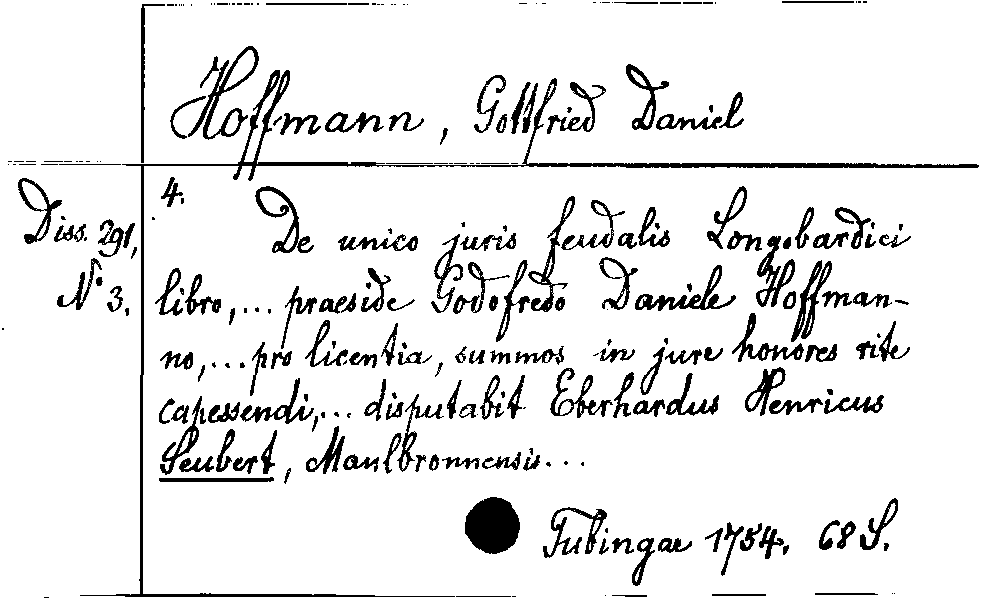 Hoffmann, Gottfried Daniel
4.
Diss. 291,
N° 3.
De unico juris feudalis Longobardici
libro,... praeside Godofredo Daniele Hoffman-
no,... pro licentia, summos in jure honores rite
capessendi,... disputabit Eberhardus Henricus
Seubert, Maulbronnensis...
Tubingae 1754. 68 S.